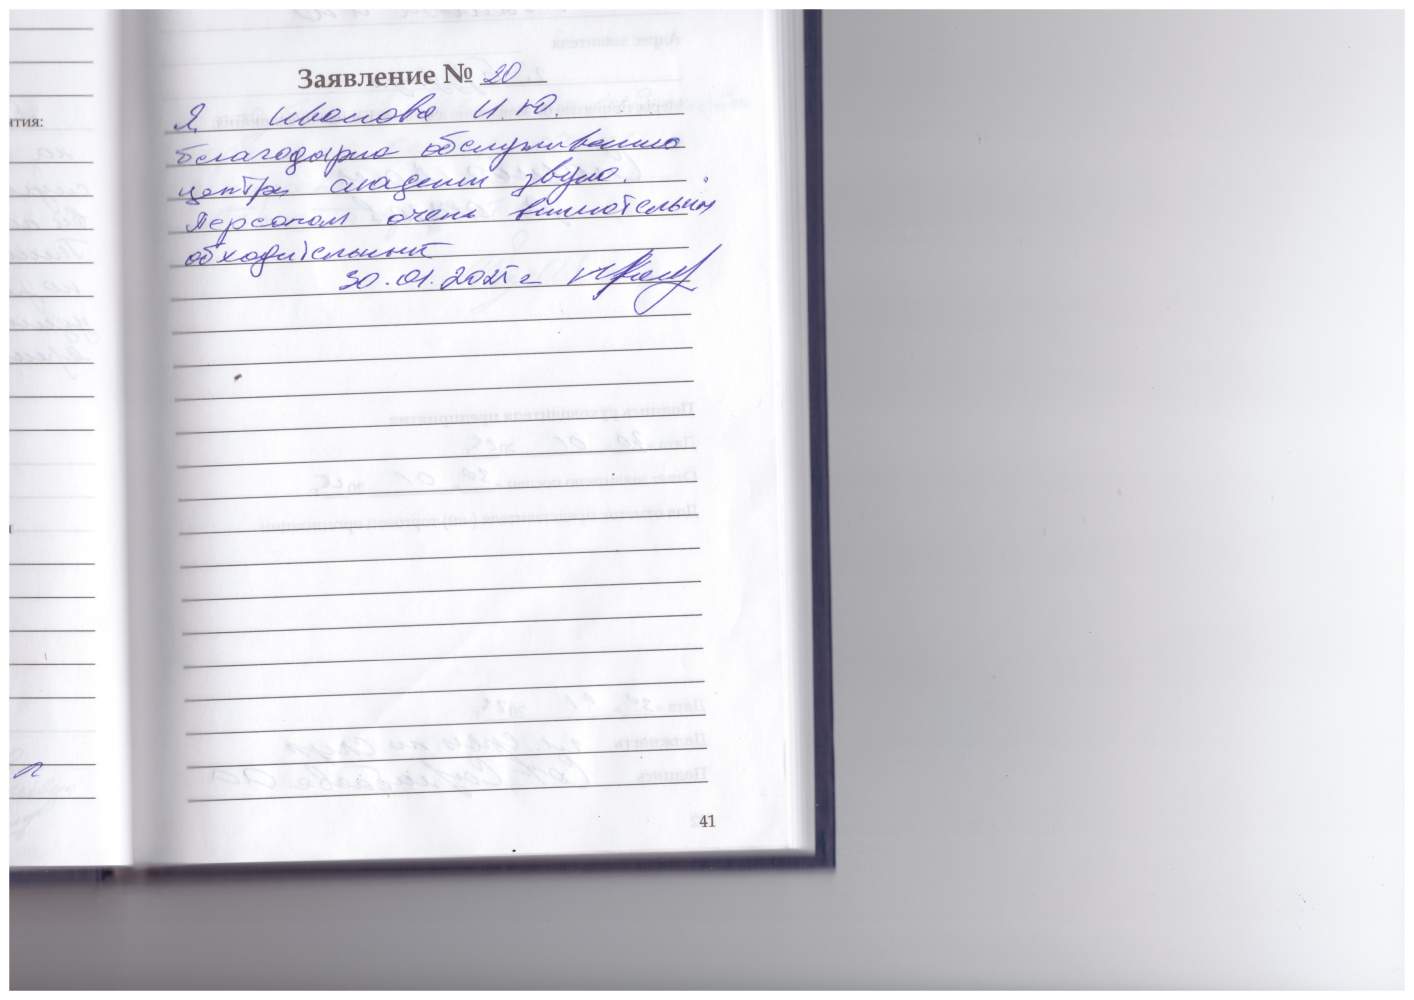 тия:
Заявление № 20
Я, Иванова И.Ю.
благодарна обслуживанию
центра академии звука.
Персонал очень внимательный
обходительный
30.01.2025 г
41